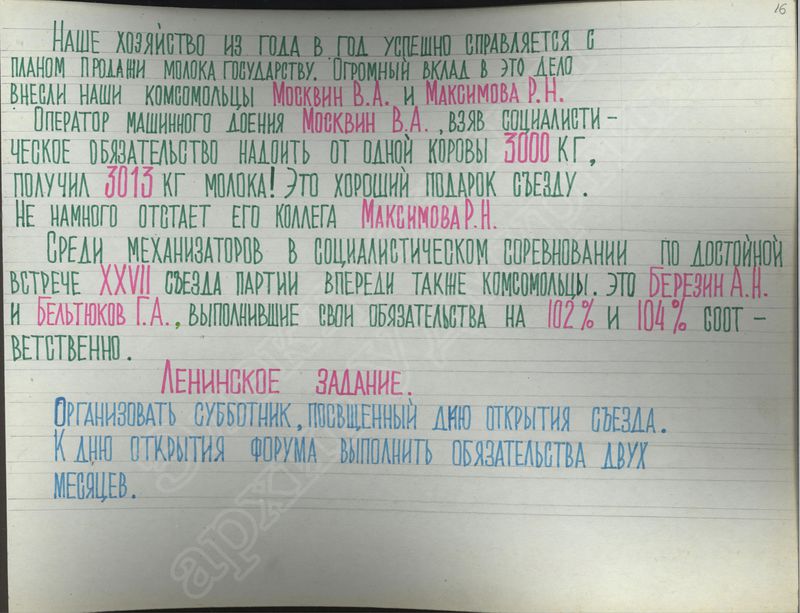 16
Наше хозяйство из года в год успешно справляется с
планом продажи молока государству. Огромный вклад в это дело
внесли наши комсомольцы Москвин В.А. и Максимова Р.Н.
Оператор машинного доения Москвин В.А., взяв социалисти-
ческое обязательство надоить от одной коровы 3000 кг,
получил 3013 кг молока! Это хороший подарок съезду.
Не намного отстает его коллега Максимова Р.Н.
Среди механизаторов в социалистическом соревновании по достойной
встрече XXVII съезда партии впереди также комсомольцы. Это Березин А.Н.
и Бельтюков Г.А., выполнившие свои обязательства на 102% и 104% соот-
ветственно.
Ленинское задание.
Организовать субботник, посвщенный дню открытия съезда.
К дню открытия форума выполнить обязательства двух
месяцев.